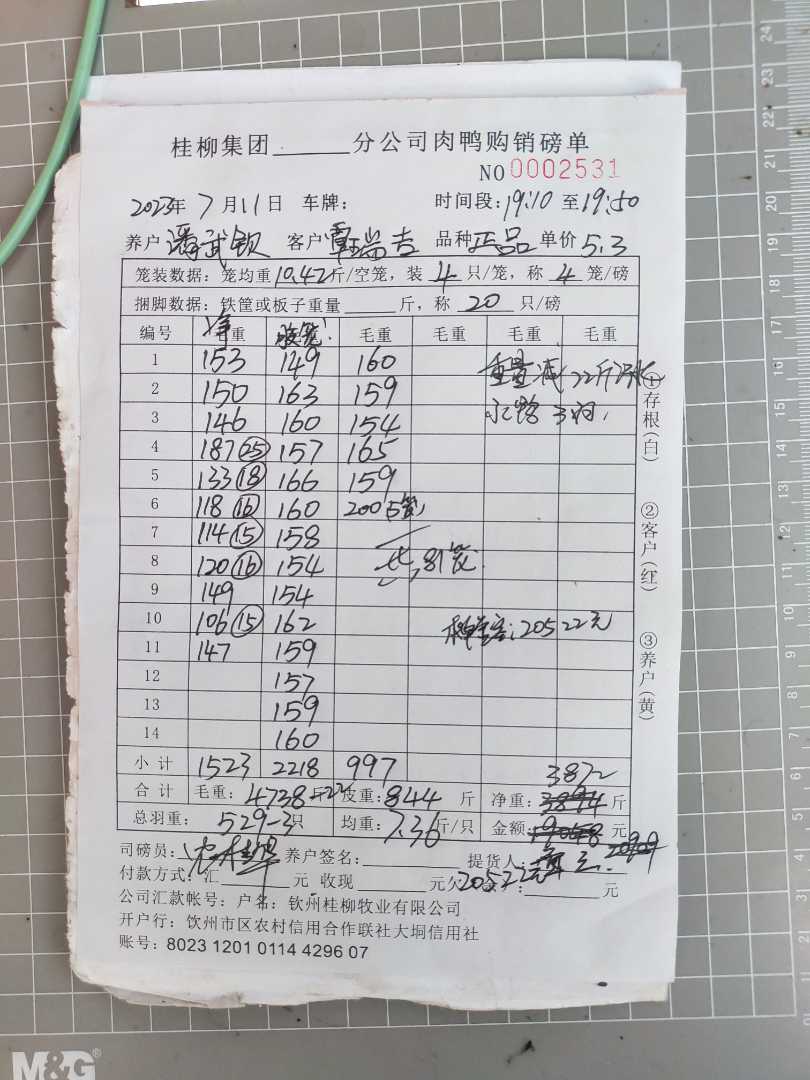 桂柳集团______分公司肉鸭购销磅单
NO 0002531
2023年 7月11日 车牌: 时间段:19:10 至 19:50
养户 潘武钦 客户 品种 正品 单价 5.3
笼装数据: 笼均重 10.42 斤/空笼, 装 4 只/笼, 称 4 笼/磅
捆脚数据: 铁筐或板子重量______斤, 称 20 只/磅
编号 净重 毛重 毛重 毛重
1 153 149 160 重量减 22斤
2 150 163 159
3 146 160 154
4 187 (25) 157 165
5 133 (18) 166 159
6 118 (16) 160 200
7 114 (15) 158
8 120 (16) 154 共81笼
9 149 154
10 106 (15) 162 20522元
11 147 159
12 157
13 159
14 160
小计 1523 2218 997 3872
合计 毛重: 4738斤-22 皮重: 844 斤 净重: 3894 斤
总羽重: 529-3只 均重: 7.36 斤/只 金额: 元
司磅员: 养户签名: 提货人: 20909
付款方式: 汇______元 收现______元欠款: 20522元 元
公司汇款帐号: 户名: 钦州桂柳牧业有限公司
开户行: 饮州市区农村信用合作联社大垌信用社
账号: 8023 1201 0114 4296 07
①存根(白)
②客户(红)
③养户(黄)
M&G
24
23
22
21
20
19
18
17
16
15
14
13
12
11
10
9
8
7
6
5
4
3
2
1